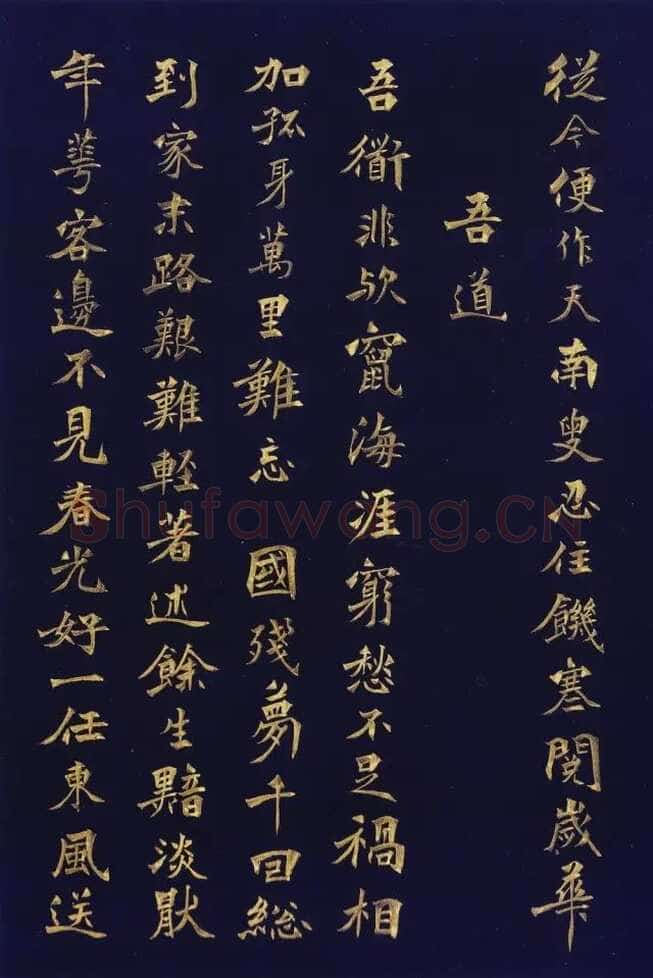 從今便作天南叟忍住饑寒閱歲華
吾道
吾衜非欤竄海涯窮愁不足禍相
加孤身萬里難忘 國残夢千回総
到家末路艱難軽著述餘生黯淡猒
年華客邊不見春光好一任東風送
Shufawang.CN